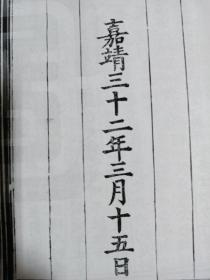 嘉靖三十二年三月十五日